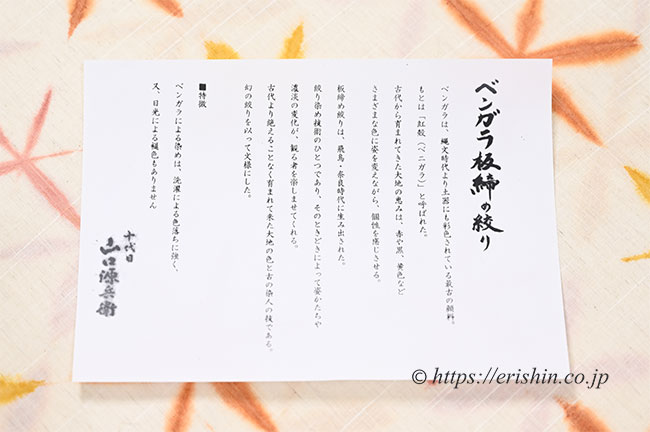 ベンガラ板締の絞り
ベンガラは、縄文時代より土器にも彩色されている最古の顔料。
もとは「紅殻（ベニガラ）」と呼ばれた。
古代から育まれてきた大地の恵みは、赤や黒、黄色など
さまざまな色に姿を変えながら、個性を感じさせる。
板締め絞りは、飛鳥・奈良時代に生み出された。
絞り染め技術のひとつであり、そのときどきによって姿かたちや
濃淡の変化が、観る者を楽しませてくれる。
古代より絶えることなく育まれて来た大地の色と古の染人の技である。
幻の絞りを以って文様にした。
■特徴
ベンガラによる染めは、洗濯による色落ちに強く、
又、日光による褪色もありません
十代目
山口源兵衛
© https://erishin.co.jp